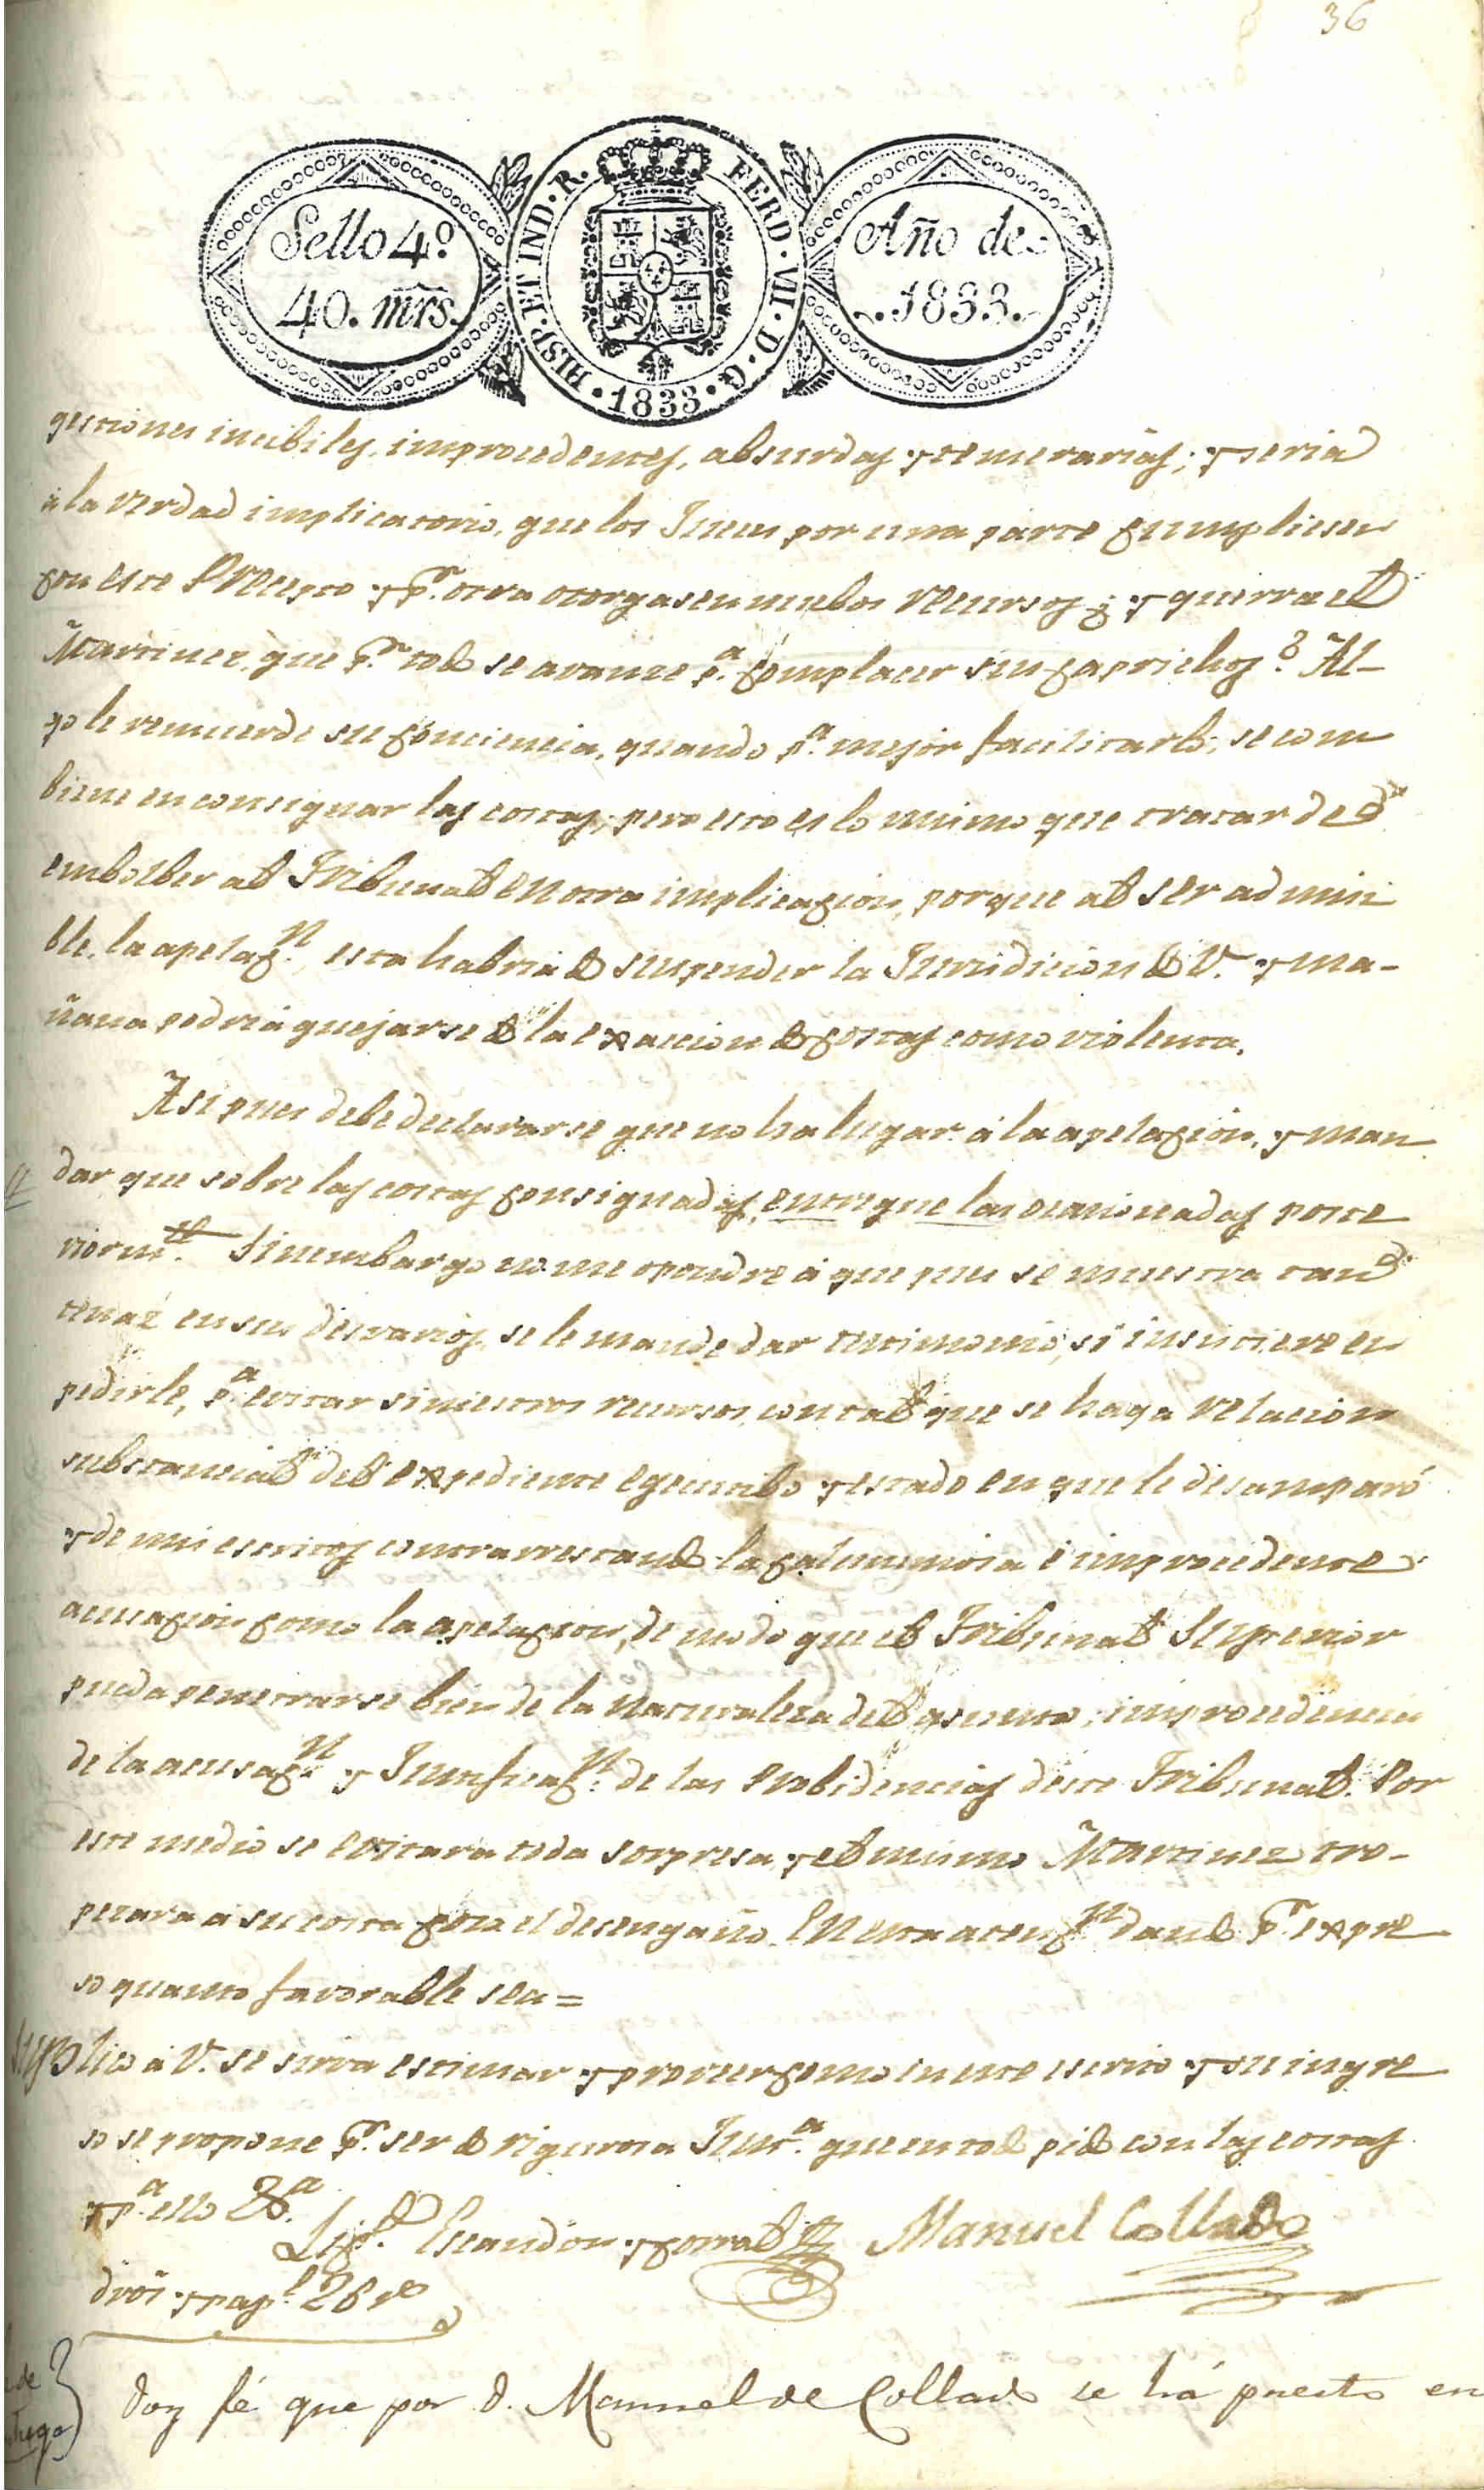 36
Sello 4º
40. mrs.
HISP. ET IND. R. FERD. VII. D. G. 1833.
Año de
1833.
gestiones incibiles, improcedentes, absurdas y temerarias; y seria
á la verdad implicatorio, que los Jueces por una parte cumpliesen
con este Precepto y pr. otra otorgasen nuebos recursos; y querra el
Martinez, que pr. todo se avanze pa. complacer sus caprichos? Al-
go le remuerde su conciencia, quando pa. mejor facilitarlo, se com
biene en consignar las costas; pero esto es lo mismo que tratar de
embolber al Tribunal en otra implicacion, porque al ser admisi
ble, la apelacn. esta habria de suspender la Jurisdicion de V. y ma-
ñana podria quejarse de la exaccion de costas como violenta.
Asi pues debe declararse que no ha lugar á la apelacion, y man
dar que sobre las costas consignadas, entregue las ocasionadas poste
riormte. Sinembargo no me opondre á que pues se muestra tan
tenaz en sus desvarios, se le mande dar testimonio, si insistiere en
pedirle, pa. evitar siniestros recursos, con tal que se haga relacion
substancial del expediente egecutibo y estado en que le desamparó
y de mis escritos contrarrestando la calumniosa é improcedente
acusacion como la apelacion, de modo que el Tribunal Superior
pueda penetrarse bien de la naturaleza del asunto, improcedencia
de la acusacn. y Justificacn. de las Probidencias deste Tribunal. Por
este medio se evitara toda sorpresa, y el mismo Martinez tro-
pezara a su costa con el desengaño. En esta atencn. dando pr. expre
so quanto favorable sea =
Suplico á V. se sirva estimar y proveer como en este escrito y su ingre
so se propone pr. ser de rigurosa Justa. que en todo pido con las costas
y pa. ello &a.
Licdo. Escandon y Corral Manuel Collado
dros y papl. 28 rs
Doy fé que por D. Manuel de Collado se há puesto en